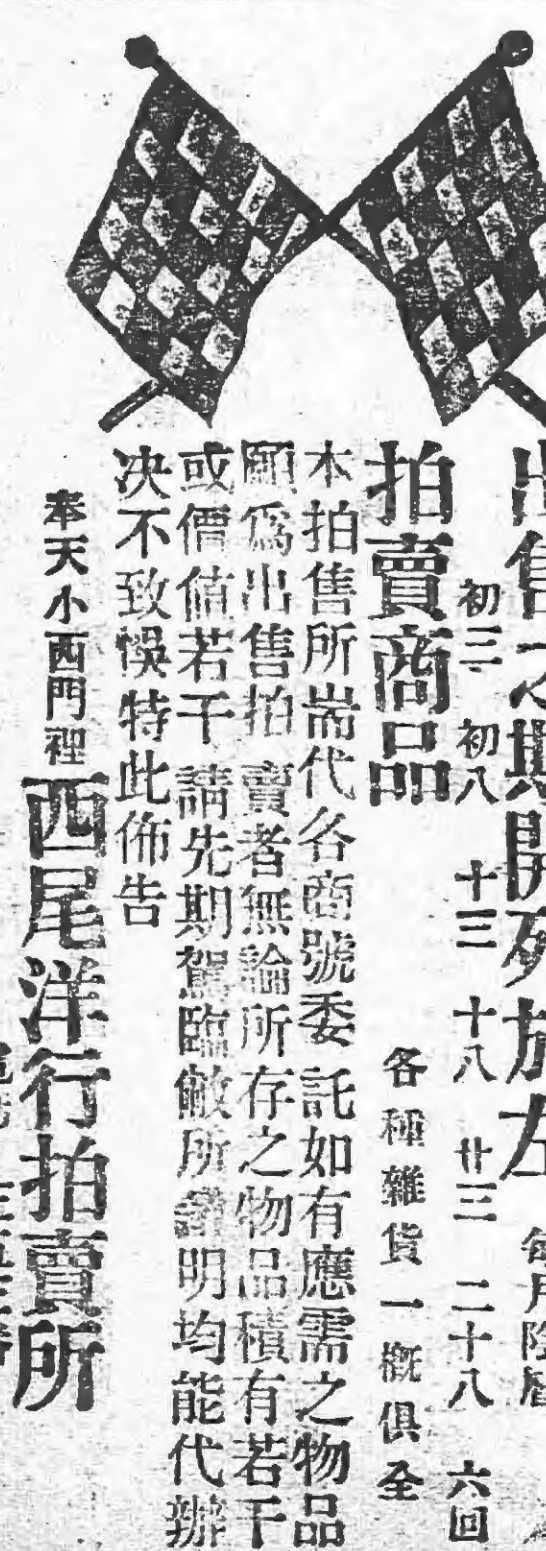 出售之期開列於左 每月陰曆
初三 初八 十三 十八 廿三 二十八 六回
拍賣商品 各種雜貨一概俱全
本拍售所耑代各商號委託如有應需之物品
願爲出售拍賣者無論所存之物品積有若干
或價值若干請先期駕臨敝所講明均能代辦
决不致悞特此佈告
奉天小西門裡 西尾洋行拍賣所